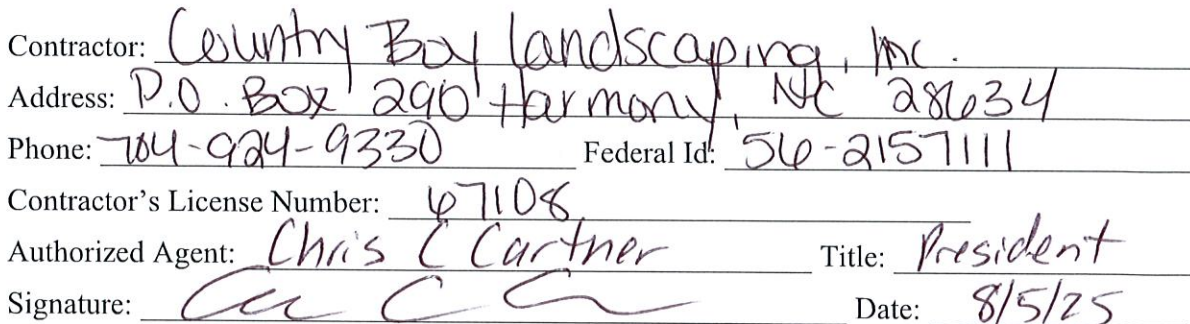 Contractor: Country Boy Landscaping, Inc.
Address: P.O. Box 290 Harmony, NC 28634
Phone: 704-924-9330 Federal Id: 56-2157111
Contractor's License Number: 67108
Authorized Agent: Chris C Cartner Title: President
Signature: Date: 8/5/25